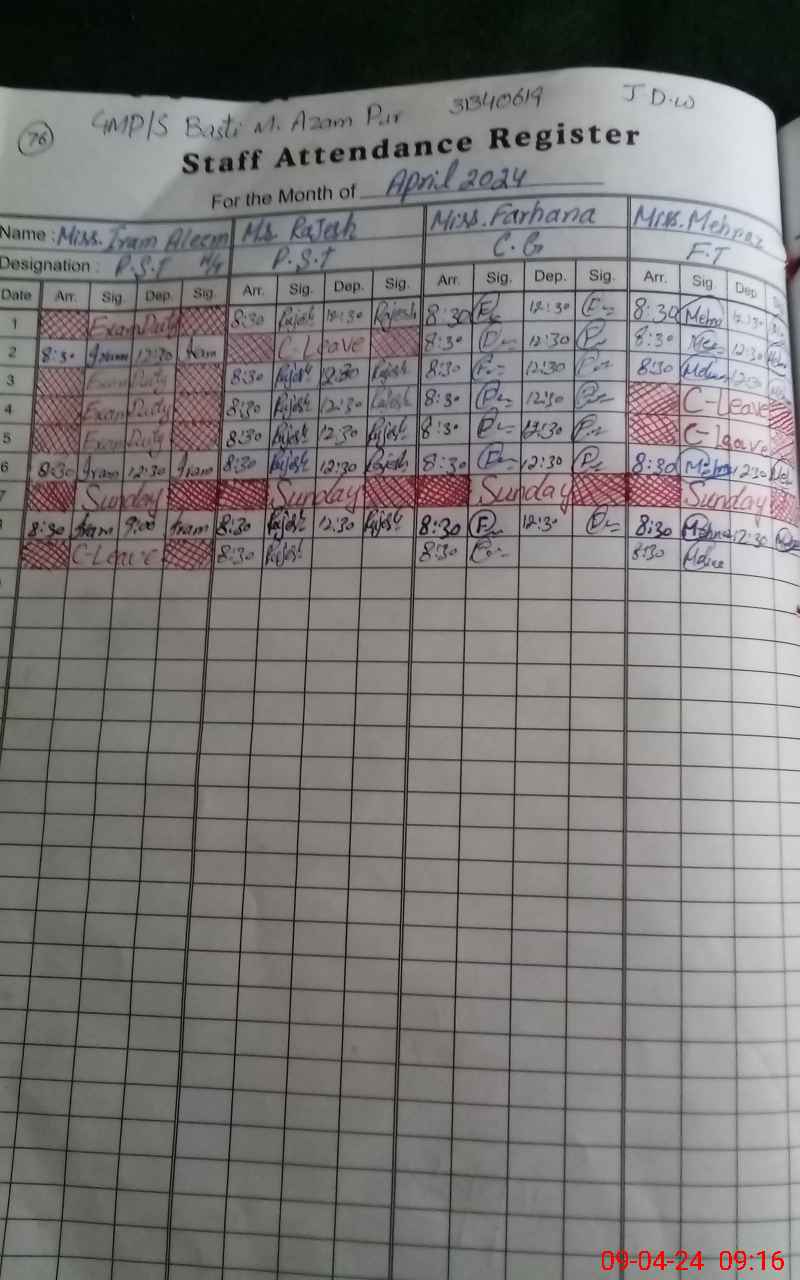 76 GMP/S Basti M. Azam Pur 31340619 J.D.W
Staff Attendance Register
For the Month of April 2024
Name : Miss. Iram Aleem Ms Rajesh Miss. Farhana Miss. Mehnaz
Designation : P.S.T P.S.T C.G F.T
Date Arr. Sig. Dep. Sig. Arr. Sig. Dep. Sig. Arr. Sig. Dep. Sig. Arr. Sig. Dep
1 Exam Duty 8:30 Rajesh 12:30 Rajesh 8:30 12:30 8:30 Mehna 12:30
2 8:30 Iram 12:30 Iram C-Leave 8:30 12:30 8:30 12:30
3 Exam Duty 8:30 Rajesh 12:30 Rajesh 8:30 12:30 8:30 12:30
4 Exam Duty 8:30 Rajesh 12:30 Rajesh 8:30 12:30 C-Leave
5 Exam Duty 8:30 Rajesh 12:30 Rajesh 8:30 12:30 C-leave
6 8:30 Iram 12:30 Iram 8:30 Rajesh 12:30 Rajesh 8:30 12:30 8:30 Mehna 12:30
7 Sunday Sunday Sunday Sunday
8:30 Iram 9:00 Iram 8:30 Rajesh 12:30 Rajesh 8:30 F 12:30 8:30 Mehna 12:30
C-Leave 8:30 Rajesh 8:30 8:30
09-04-24 09:16